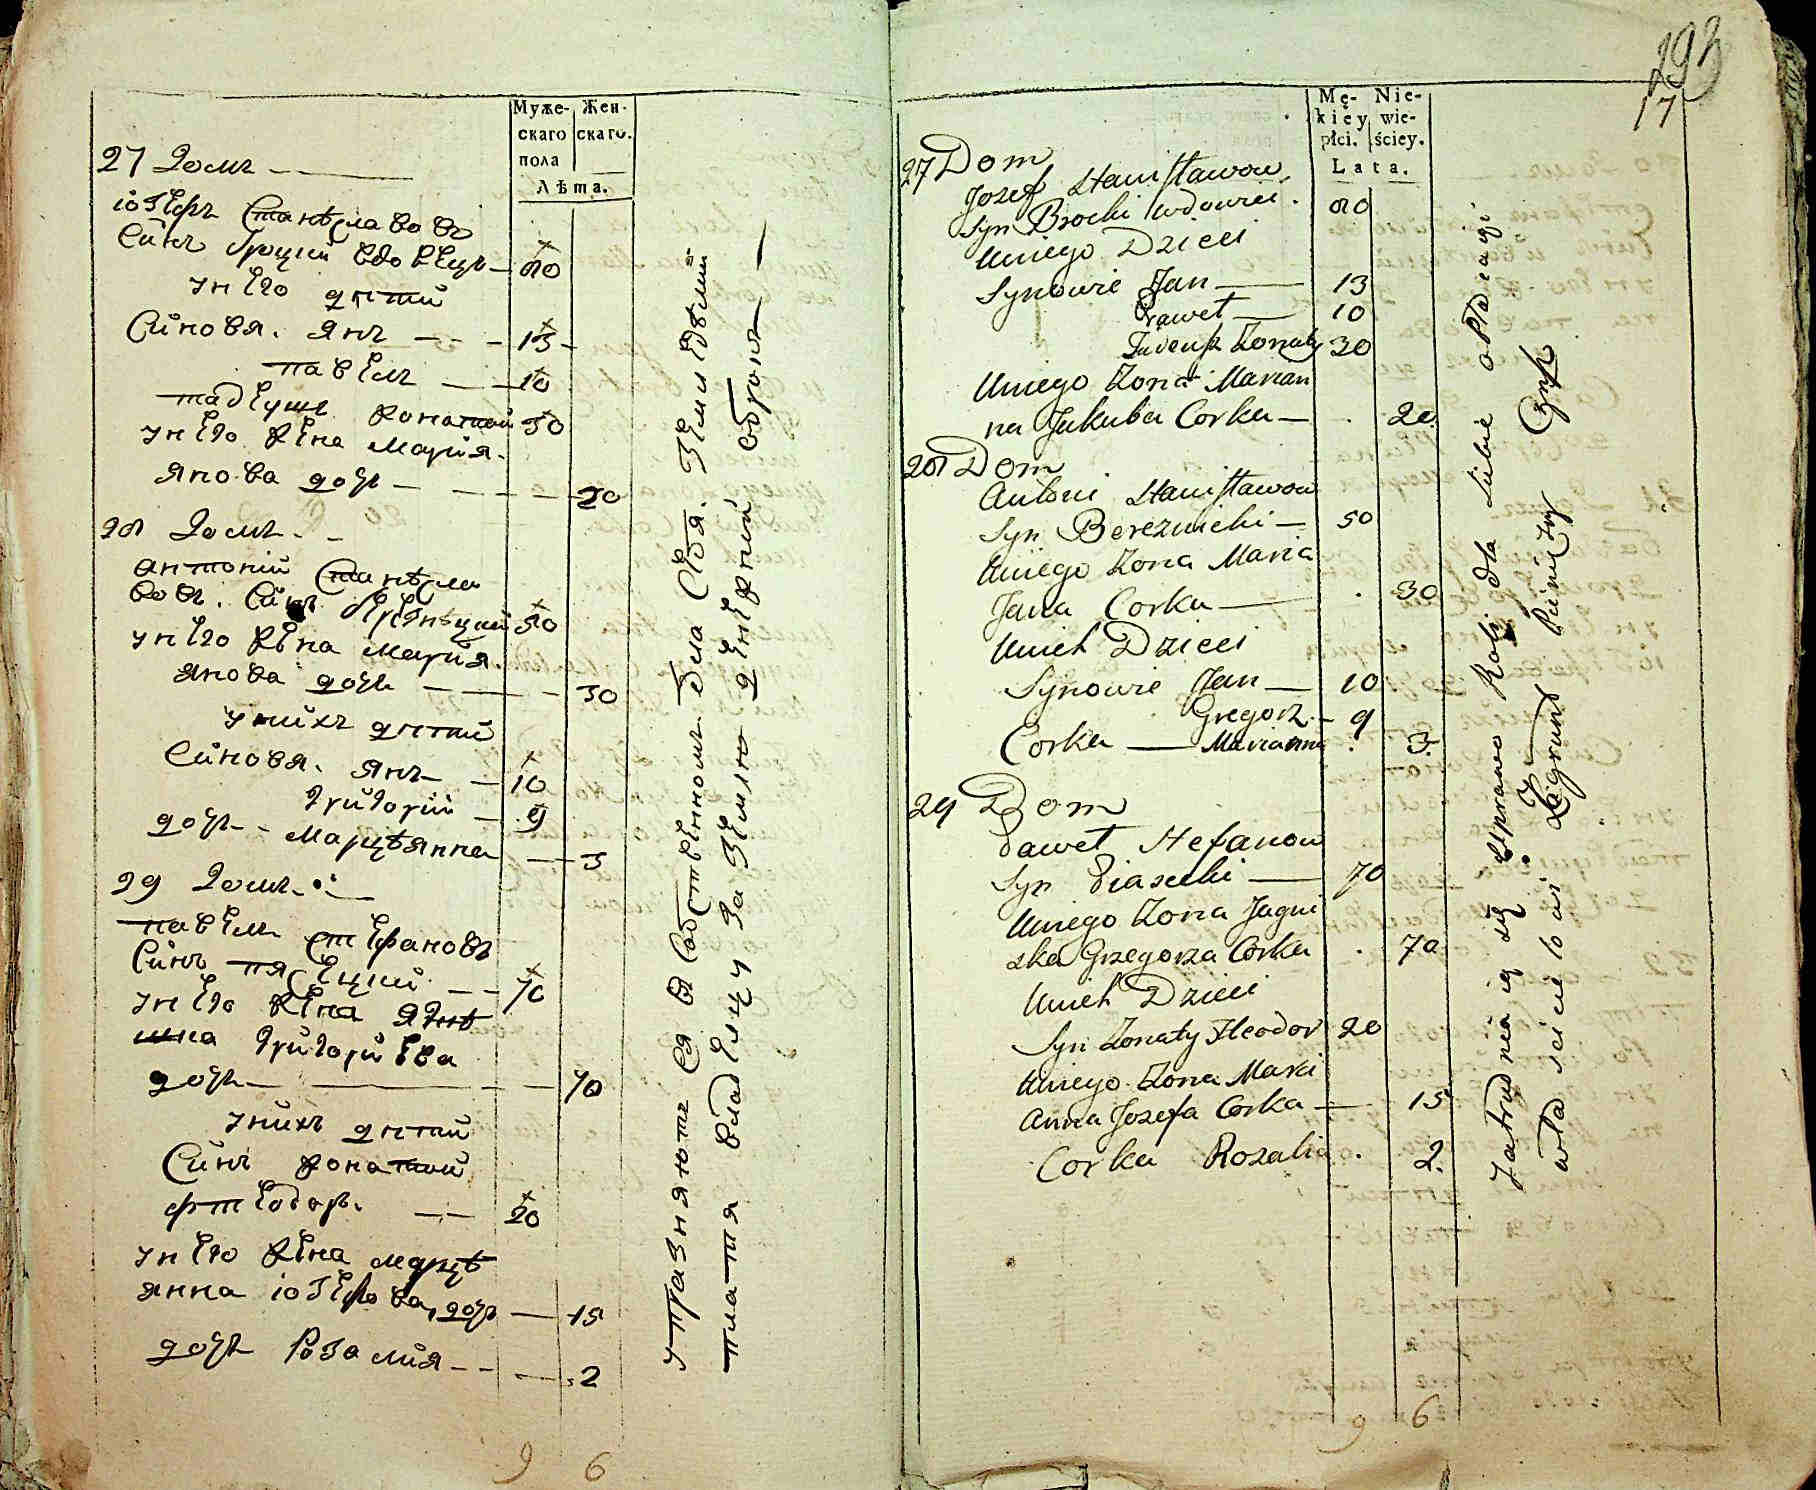 Муже-
скаго
пола
Жен-
скаго.
Лѣта.
27 Домъ
іозефъ Станѣславовъ
Синъ Броцкий вдовецъ 80
у него дѣтей
Синовя. янъ 13
павелъ 10
тадеушъ жонатий 30
у него жена Мария.
янова дочь 20
28 Домъ
антоній Станѣсла
вовъ. Синъ 50
у него жена Мария.
янова дочь 30
у нихъ дѣтей
Синовя. янъ 10
григорій 9
дочь Марцѣянна 3
29 Домъ
павелъ стефановъ
Синъ пясецкий 70
у него жена ягнѣ
шка григориева
дочь 70
у нихъ дѣтей
Синъ жонатий
фтеодоръ. 20
у него жена марцѣ
янна іозефова, дочь 15
дочь Розалия 2
9 6
упразняютъ ся в Собственномъ для Себя. Земледѣлии
платя владелцу за землю денежний оброкъ
193
17
Mę-
kiey
płci.
Nie-
wie-
ściey.
Lata.
27 Dom
Jozef Stanisławow
Syn Brocki wdowiec. 80
Uniego Dzieci
Synowie Jan 13
Paweł 10
Tadeusz Zonaty 30
Uniego Zona Marian
na Jakuba Corka 20
28 Dom
Antoni Stanisławow
Syn Bereznicki 50
Uniego Zona Maria
Jana Corka 30
Unich Dzieci
Synowie Jan 10
Gregorz. 9
Corka Marianna 3
29 Dom
Paweł Stefanow
Syn Piasecki 70
Uniego Zona Jagni
szka Grzegorza Corka 70
Unich Dzieci
Syn Zonaty Fteodor 20
Uniego Zona Mari
Anna Jozefa Corka 15
Corka Rozalia 2
9 6
Zatrudniaią się Uprawą Roli dla siebie opłacaiąc
właścicielowi Zagrunt Pieniężny Czynsz